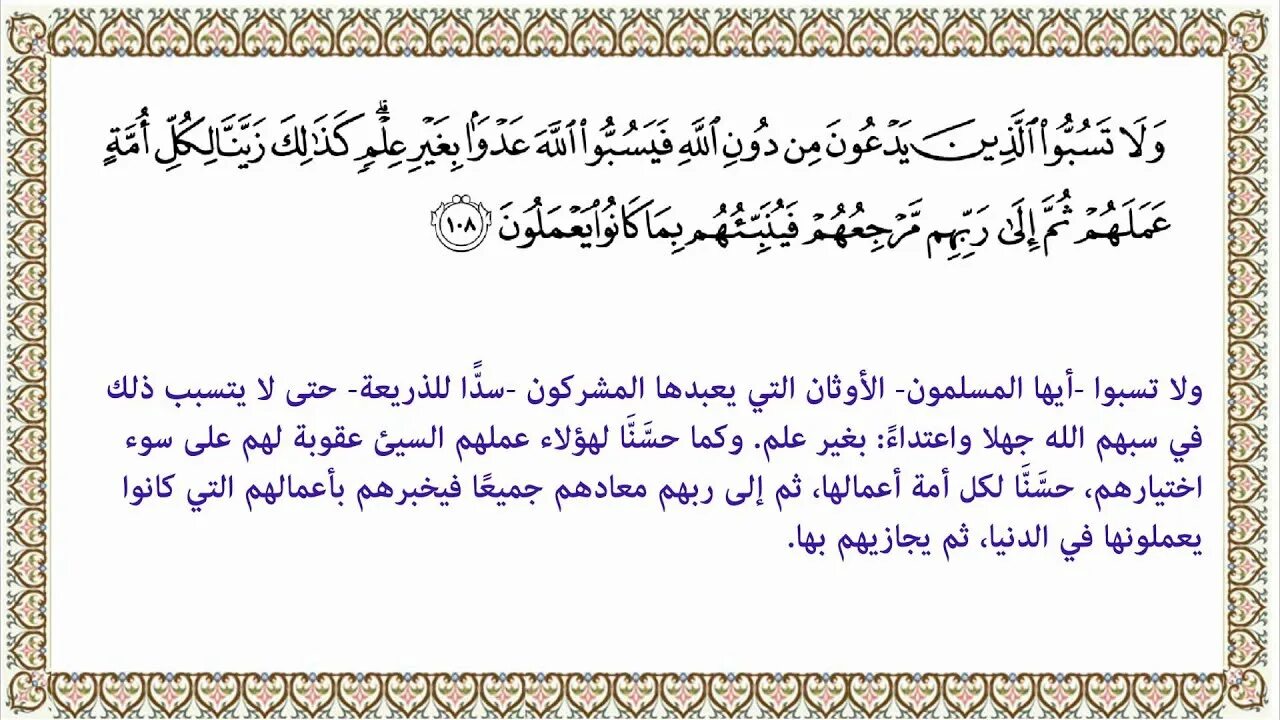 وَلَا تَسُبُّوا۟ ٱلَّذِينَ يَدْعُونَ مِن دُونِ ٱللَّهِ فَيَسُبُّوا۟ ٱللَّهَ عَدْوًۢا بِغَيْرِ عِلْمٍۗ كَذَٰلِكَ زَيَّنَّا لِكُلِّ أُمَّةٍ
عَمَلَهُمْ ثُمَّ إِلَىٰ رَبِّهِم مَّرْجِعُهُمْ فَيُنَبِّئُهُم بِمَا كَانُوا۟ يَعْمَلُونَ ١٠٨
ولا تسبوا -أيها المسلمون- الأوثان التي يعبدها المشركون -سدًّا للذريعة- حتى لا يتسبب ذلك
في سبهم الله جهلا واعتداءً: بغير علم. وكما حسَّنَّا لهؤلاء عملهم السيئ عقوبة لهم على سوء
اختيارهم، حسَّنَّا لكل أمة أعمالها، ثم إلى ربهم معادهم جميعًا فيخبرهم بأعمالهم التي كانوا
يعملونها في الدنيا، ثم يجازيهم بها.